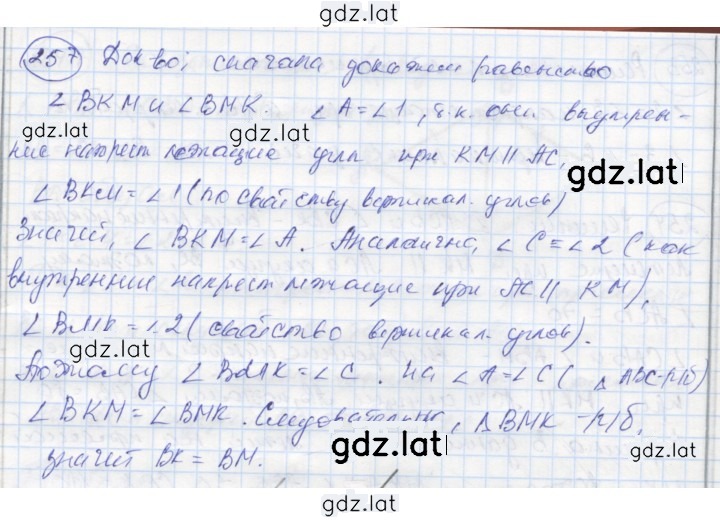 gdz.lat
257 Док-во; сначала докажем равенство
∠ BKM и ∠ BMK. ∠ A = ∠ 1, т.к. они внутрен-
gdz.lat
gdz.lat
ние накрест лежащие углы при KM || AC,
gdz.lat
∠ BKM = ∠ 1 (по свойству вертикал. углов)
Значит, ∠ BKM = ∠ A. Аналогично, ∠ C = ∠ 2 (как
внутренние накрест лежащие при AC || KM),
∠ BMK = ∠ 2 (свойство вертикал. углов).
gdz.lat
gdz.lat
Поэтому ∠ BMK = ∠ C. Но ∠ A = ∠ C (△ ABC - р/б)
∠ BKM = ∠ BMK. Следовательно, △ BMK - р/б,
gdz.lat
gdz.lat
gdz.lat
значит BK = BM.
gdz.lat